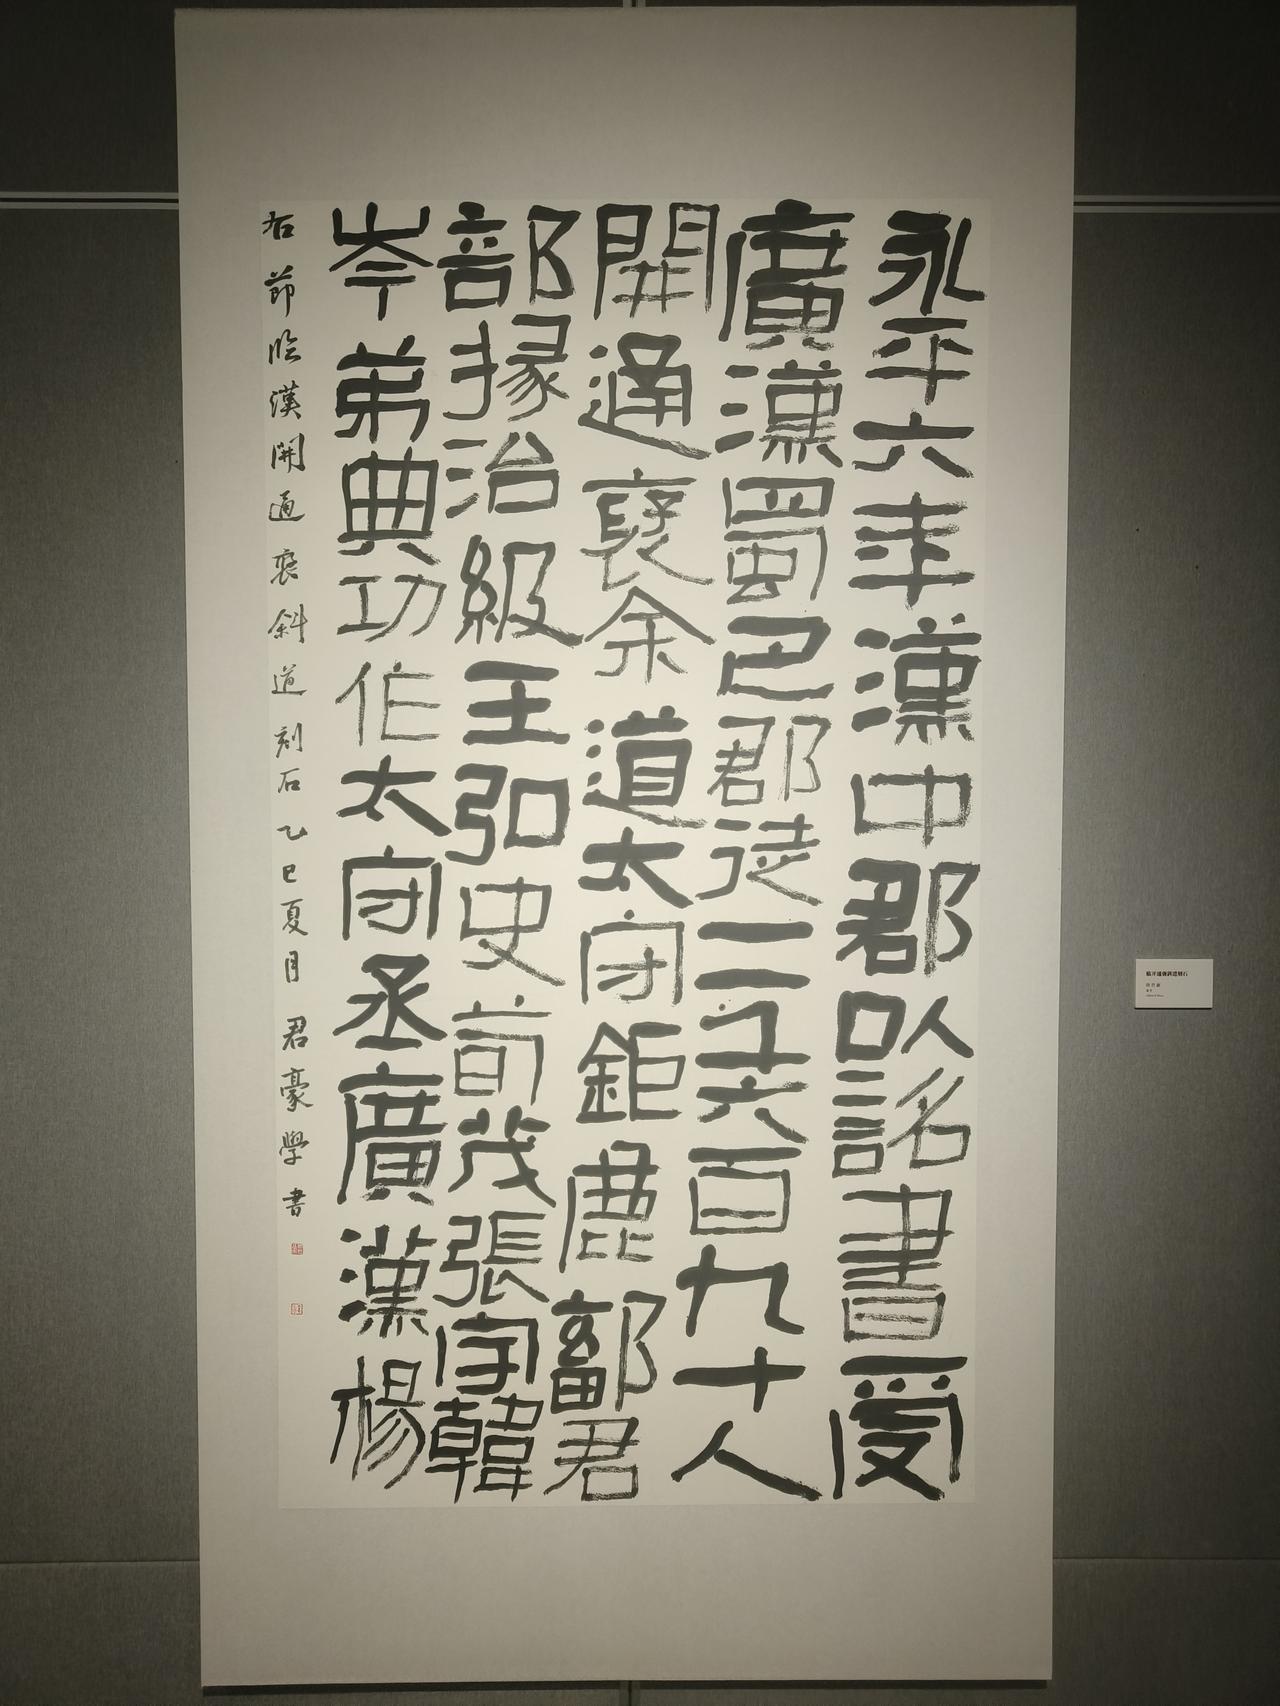 永平六年漢中郡以詺書受
廣漢蜀巴郡徒二千六百九十人
開通褒余道太守鉅鹿鄐君
部掾治級王弘史荀茂張宇韓
岑弟典功作太守丞廣漢楊
右節臨漢開通褒斜道刻石乙巳夏月君豪學書
臨開通褒斜道刻石